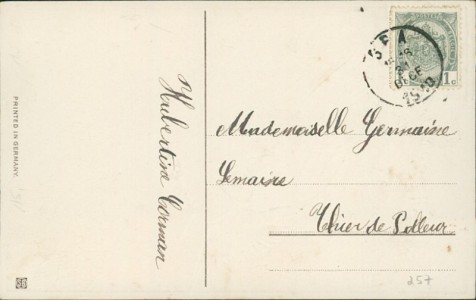 PRINTED IN GERMANY.
Hubertine Cornman
SPA
DECE
1c
Mademoiselle Germaine
Lemaire
Thier de Polleur
257